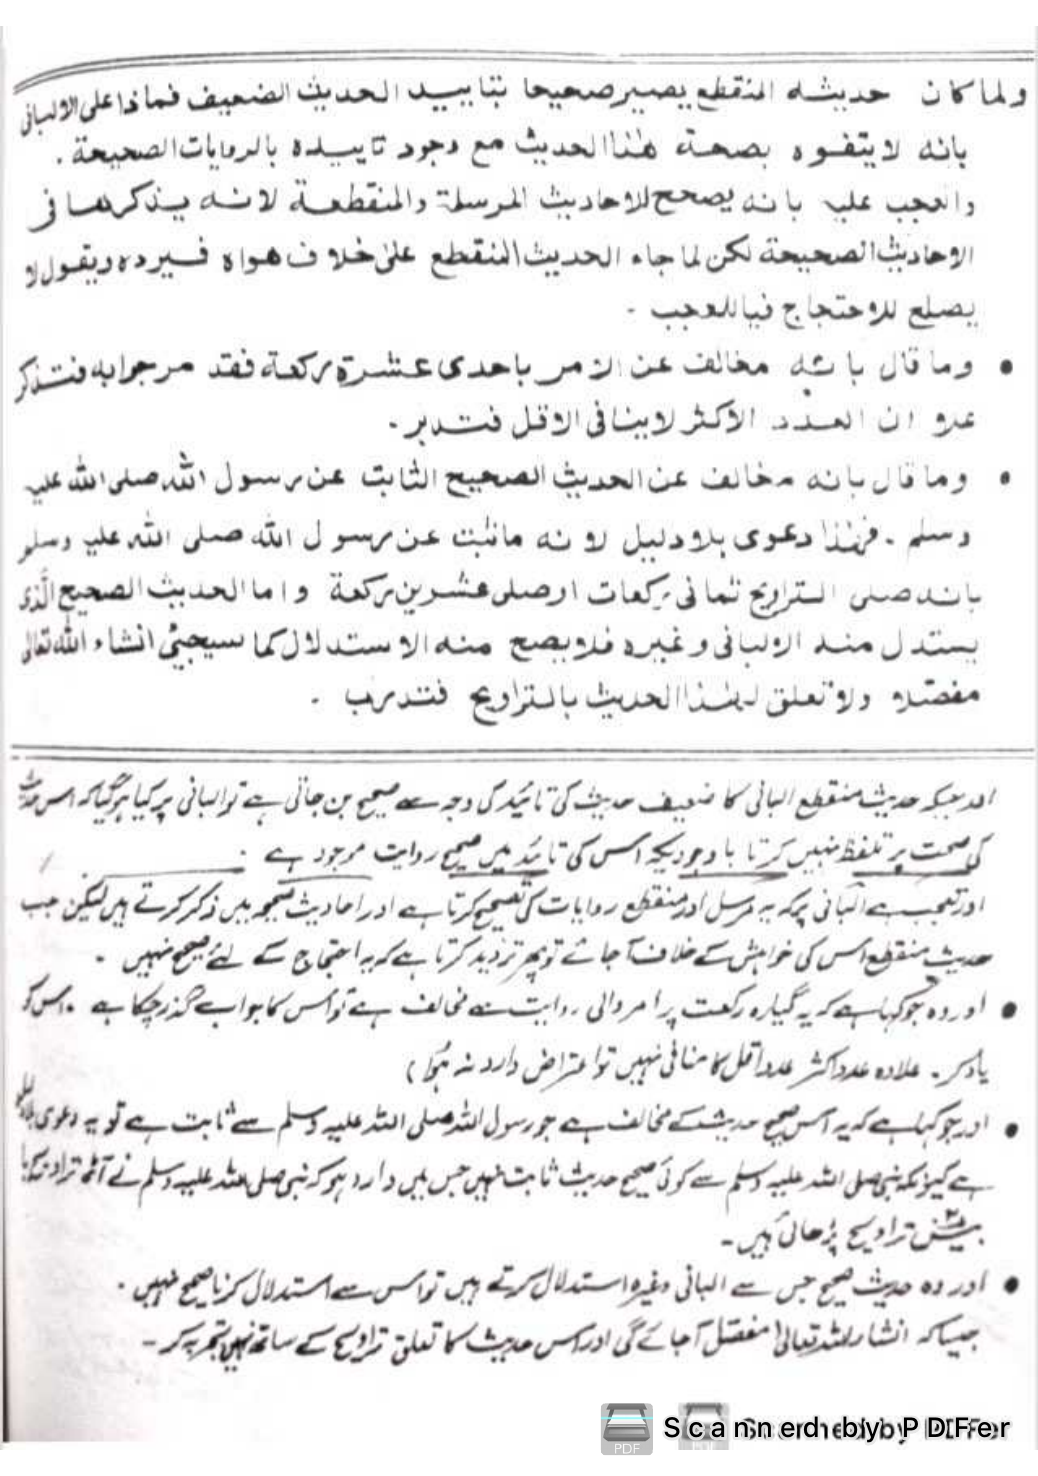 ولما كان حديثه المنقطع يصير صحيحا بتاييد الحديث الضعيف فماذا على الالبانى
بانه لا يتفوه بصحة هذا الحديث مع وجود تاييده بالروايات الصحيحة .
والعجب عليه بانه يصحح الاحاديث المرسلة والمنقطعة لانه يذكرها فى
الاحاديث الصحيحة لكن لما جاء الحديث المنقطع على خلاف هواه فيرده ويقول لا
يصلح للاحتجاج فيا للعجب -
● وما قال بانه مخالف عن الامر باحدى عشرة ركعة فقد مر جوابه فتذكر
علا ان العدد الاكثر لا ينافى الاقل فتدبر .
● وما قال بانه مخالف عن الحديث الصحيح الثابت عن رسول الله صلى الله عليه
وسلم . فهذا دعوى بلا دليل لانه ما ثبت عن رسول الله صلى الله عليه وسلم
بانه صلى التراويح ثمانى ركعات او صلى عشرين ركعة واما الحديث الصحيح الذى
يستدل منه الالبانى وغيره فلا يصح منه الاستدلال كما سيجيئ انشاء الله تعالى
مفصلا ولا تعلق لهذا الحديث بالتراويح فتدرب .
اور جبکہ حدیث منقطع البانی کا ضعیف حدیث کی تائید کی وجہ سے صحیح بن جاتی ہے تو البانی پر کیا ہوگیا کہ اس حدیث
کی صحت پر تلفظ نہیں کرتا باوجودیکہ اس کی تائید میں صحیح روایت موجود ہے .
اور تعجب ہے البانی پر کہ یہ مرسل اور منقطع روایات کی تصحیح کرتا ہے اور احادیث صحیحہ میں ذکر کرتے ہیں لیکن جب
حدیث منقطع اس کی خواہش کے خلاف آجائے تو پھر تردید کرتا ہے کہ یہ احتجاج کے لئے صحیح نہیں -
● اور وہ جو کہا ہے کہ یہ گیارہ رکعت پر امر والی روایت سے مخالف ہے تو اس کا جواب گذر چکا ہے . اس کو
یاد کر . علاوہ عدد اکثر عدد اقل کا منافی نہیں تو اعتراض وارد نہ ہوا )
● اور جو کہا ہے کہ یہ اس صحیح حدیث کے مخالف ہے جو رسول اللہ صلی اللہ علیہ وسلم سے ثابت ہے تو یہ دعوی بلا دلیل
ہے کیونکہ نبی صلی اللہ علیہ وسلم سے کوئی صحیح حدیث ثابت نہیں جس میں وارد ہو کہ نبی صلی اللہ علیہ وسلم نے آٹھ تراویح یا
بیس ۲۰ تراویح پڑھائی ہیں -
● اور وہ حدیث صحیح جس سے البانی وغیرہ استدلال کرتے ہیں تو اس سے استدلال کرنا صحیح نہیں .
جیسا کہ انشاء اللہ تعالیٰ مفصل آجائے گی اور اس حدیث کا تعلق تراویح کے ساتھ نہیں تجربہ کر -
Scanned by PDFer